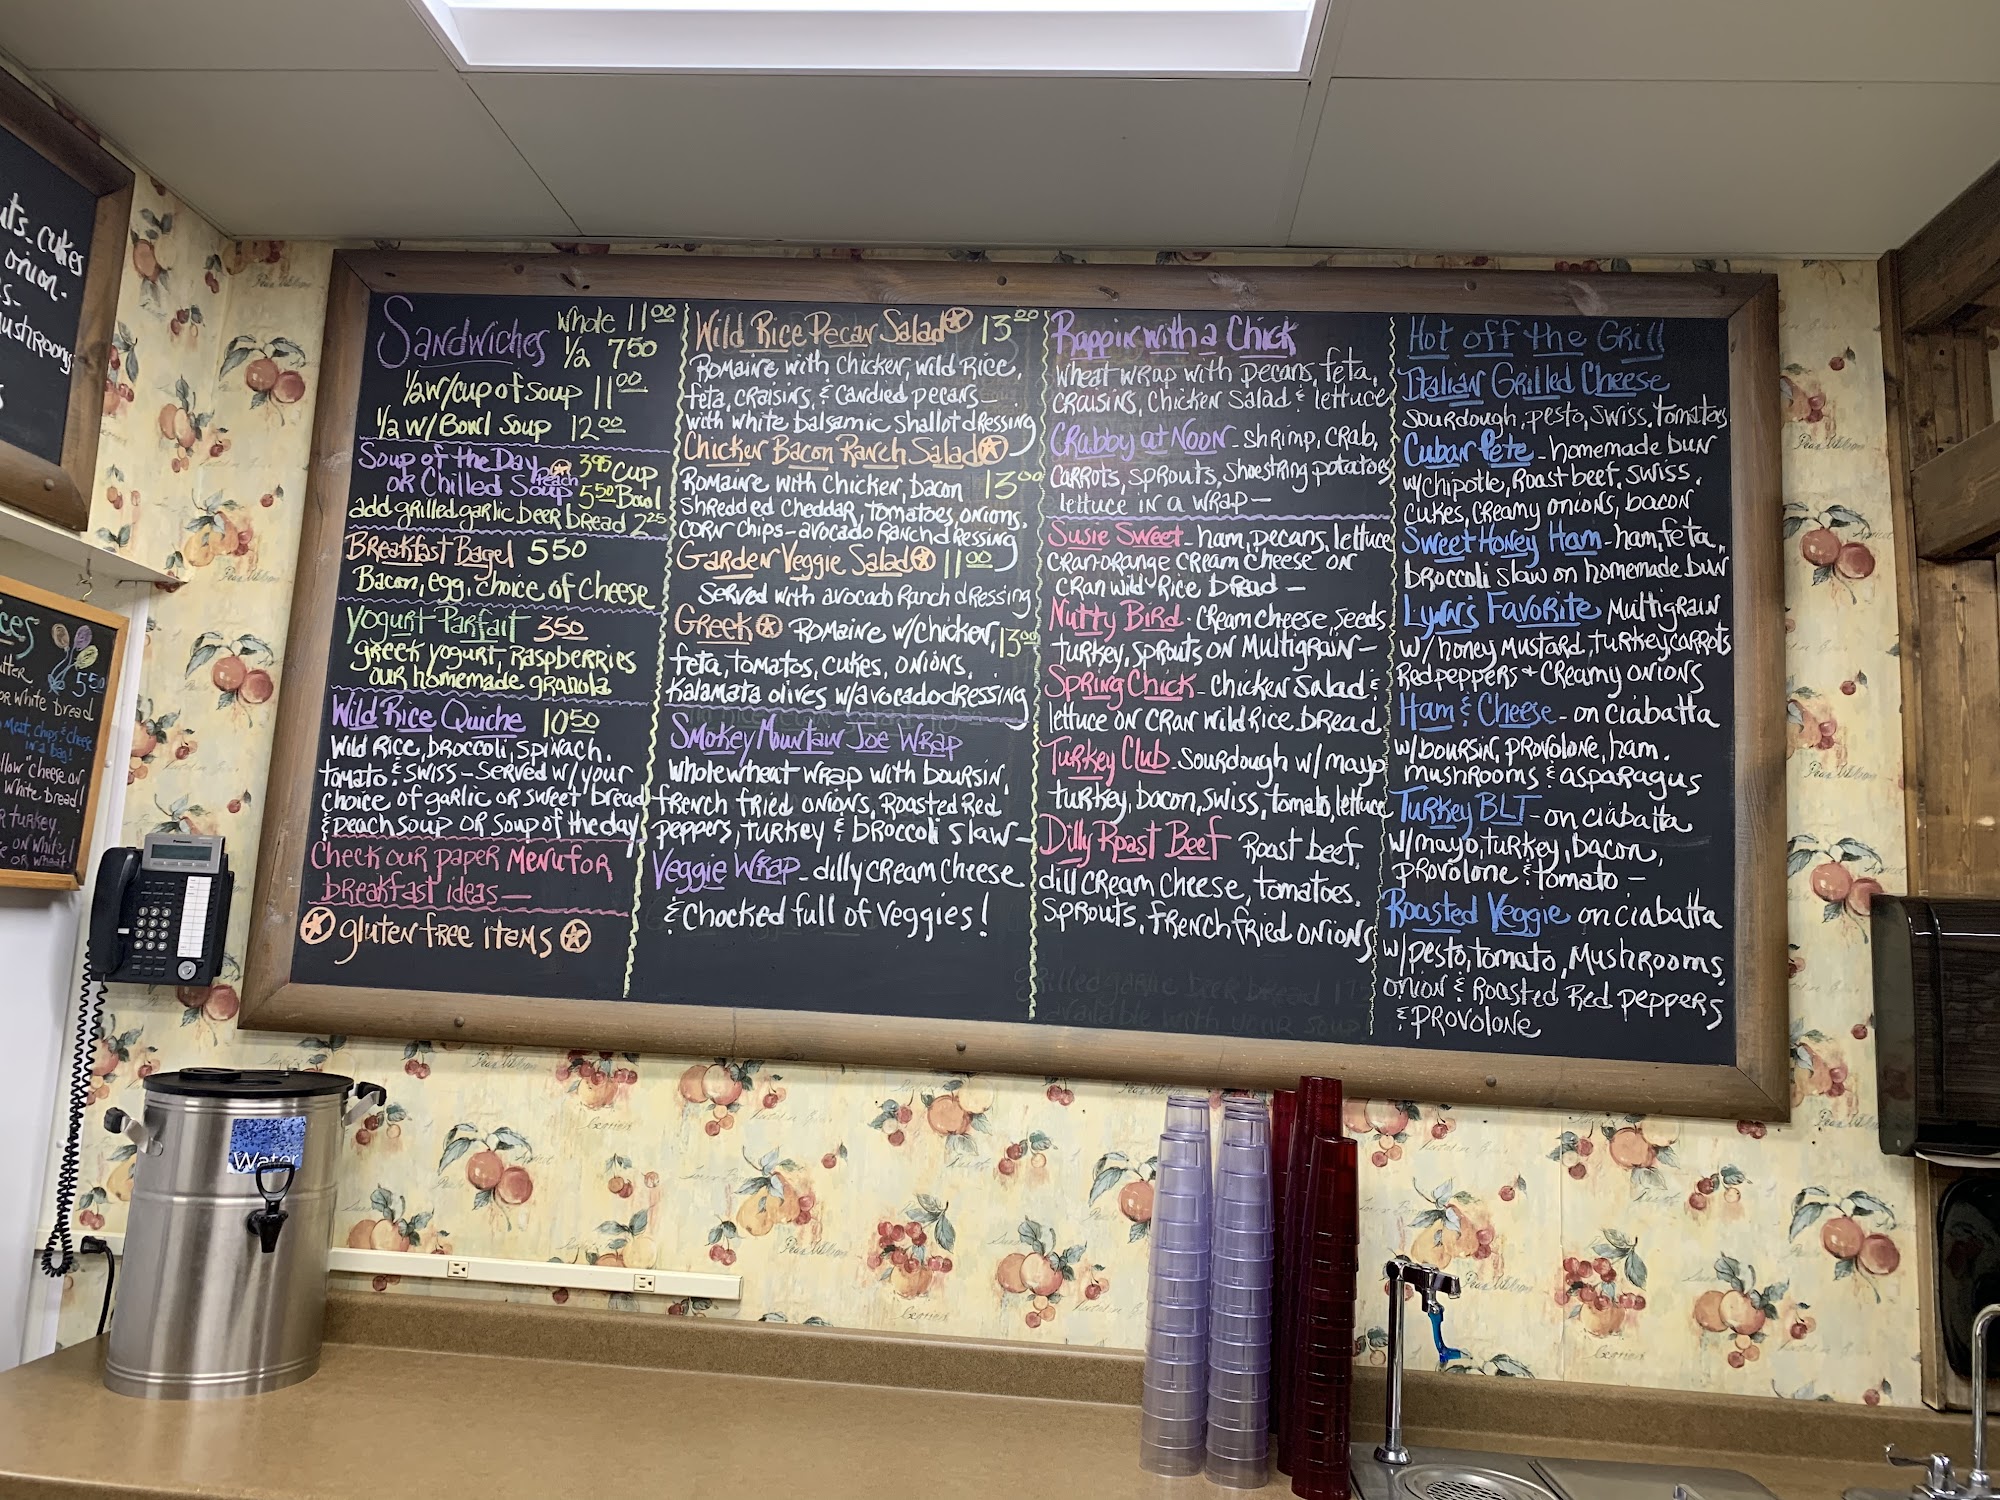 uts. cukes
onion.
ushrooms
5 50
or white bread
meat, chips & cheese
in a bag!
cheese on
white bread!
turkey
on white
or wheat!
Sandwiches Whole 11 00
1/2 7 50
1/2 w/cup of soup 11 00
1/2 w/ Bowl Soup 12 00
Soup of the Day 3 95 cup
or Chilled Soup peach 5 50 Bowl
add grilled garlic beer bread 2 25
Breakfast Bagel 5 50
Bacon, egg, choice of cheese
Yogurt Parfait 3 50
greek yogurt, raspberries
our homemade granola
Wild Rice Quiche 10 50
Wild Rice, broccoli, spinach,
tomato & swiss - served w/ your
choice of garlic or sweet bread
& peach soup or soup of the day
Check our paper menu for
breakfast ideas -
gluten free items
Wild Rice Pecan Salad 13 00
Romaine with chicken, wild rice,
feta, craisins, & candied pecans -
with white balsamic shallot dressing
Chicken Bacon Ranch Salad
Romaine with chicken, bacon 13 00
shredded cheddar, tomatoes, onions,
corn chips - avocado ranch dressing
Garden Veggie Salad 11 00
Served with avocado ranch dressing
Greek Romaine w/chicken, 13 00
feta, tomatos, cukes, onions,
Kalamata olives w/avocado dressing
Smokey Mountain Joe Wrap
Whole wheat wrap with boursin,
french fried onions, roasted red
peppers, turkey & broccoli slaw -
Veggie Wrap - dilly cream cheese
& chocked full of veggies!
Rappin with a Chick
wheat wrap with pecans, feta,
craisins, chicken salad & lettuce
Crabby at Noon - shrimp, crab,
carrots, sprouts, shoestring potatoes
lettuce in a wrap -
Susie Sweet - ham, pecans, lettuce
cran-orange cream cheese on
cran wild rice bread -
Nutty Bird - cream cheese, seeds
turkey, sprouts on multigrain -
Spring Chick - chicken salad &
lettuce on cran wild rice bread
Turkey Club - sourdough w/ mayo
turkey, bacon, swiss, tomato, lettuce
Dilly Roast Beef Roast beef,
dill cream cheese, tomatoes,
sprouts, french fried onions
grilled garlic beer bread 1 75
available with your soup
Hot off the Grill
Italian Grilled Cheese
sourdough, pesto, swiss, tomatoes
Cuban Pete - homemade bun
w/chipotle, roast beef, swiss,
cukes, creamy onions, bacon
Sweet Honey Ham - ham, feta,
broccoli slaw on homemade bun
Lynn's Favorite multigrain
w/ honey mustard, turkey carrots
Red peppers + creamy onions
Ham & Cheese - on ciabatta
w/boursin, provolone, ham,
mushrooms & asparagus
Turkey BLT - on ciabatta
w/mayo, turkey, bacon,
provolone & tomato -
Roasted Veggie on ciabatta
w/pesto, tomato, mushrooms,
onion & roasted red peppers
& provolone
Water